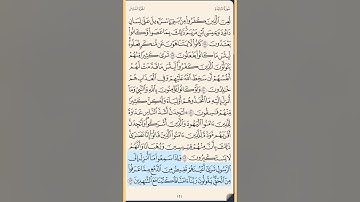 لُعِنَ ٱلَّذِينَ كَفَرُواْ مِنۢ بَنِيٓ إِسۡرَٰٓءِيلَ عَلَىٰ لِسَانِ
دَاوُۥدَ وَعِيسَى ٱبۡنِ مَرۡيَمَۚ ذَٰلِكَ بِمَا عَصَواْ وَّكَانُواْ
يَعۡتَدُونَ ۝ كَانُواْ لَا يَتَنَاهَوۡنَ عَن مُّنكَرٖ فَعَلُوهُۚ
لَبِئۡسَ مَا كَانُواْ يَفۡعَلُونَ ۝ تَرَىٰ كَثِيرٗا مِّنۡهُمۡ
يَتَوَلَّوۡنَ ٱلَّذِينَ كَفَرُواْۚ لَبِئۡسَ مَا قَدَّمَتۡ لَهُمۡ
أَنفُسُهُمۡ أَن سَخِطَ ٱللَّهُ عَلَيۡهِمۡ وَفِي ٱلۡعَذَابِ هُمۡ
خَٰلِدُونَ ۝ وَلَوۡ كَانُواْ يُؤۡمِنُونَ بِٱللَّهِ وَٱلنَّبِيِّ وَمَآ
أُنزِلَ إِلَيۡهِ مَا ٱتَّخَذُوهُمۡ أَوۡلِيَآءَ وَلَٰكِنَّ كَثِيرٗا
مِّنۡهُمۡ فَٰسِقُونَ ۝ لَتَجِدَنَّ أَشَدَّ ٱلنَّاسِ عَدَٰوَةٗ
لِّلَّذِينَ ءَامَنُواْ ٱلۡيَهُودَ وَٱلَّذِينَ أَشۡرَكُواْۖ وَلَتَجِدَنَّ
أَقۡرَبَهُم مَّوَدَّةٗ لِّلَّذِينَ ءَامَنُواْ ٱلَّذِينَ قَالُوٓاْ إِنَّا نَصَٰرَىٰۚ
ذَٰلِكَ بِأَنَّ مِنۡهُمۡ قِسِّيسِينَ وَرُهۡبَانٗا وَأَنَّهُمۡ
لَا يَسۡتَكۡبِرُونَ ۝ وَإِذَا سَمِعُواْ مَآ أُنزِلَ إِلَى
ٱلرَّسُولِ تَرَىٰٓ أَعۡيُنَهُمۡ تَفِيضُ مِنَ ٱلدَّمۡعِ مِمَّا عَرَفُواْ
مِنَ ٱلۡحَقِّۖ يَقُولُونَ رَبَّنَآ ءَامَنَّا فَٱكۡتُبۡنَا مَعَ ٱلشَّٰهِدِينَ ۝
١٢١